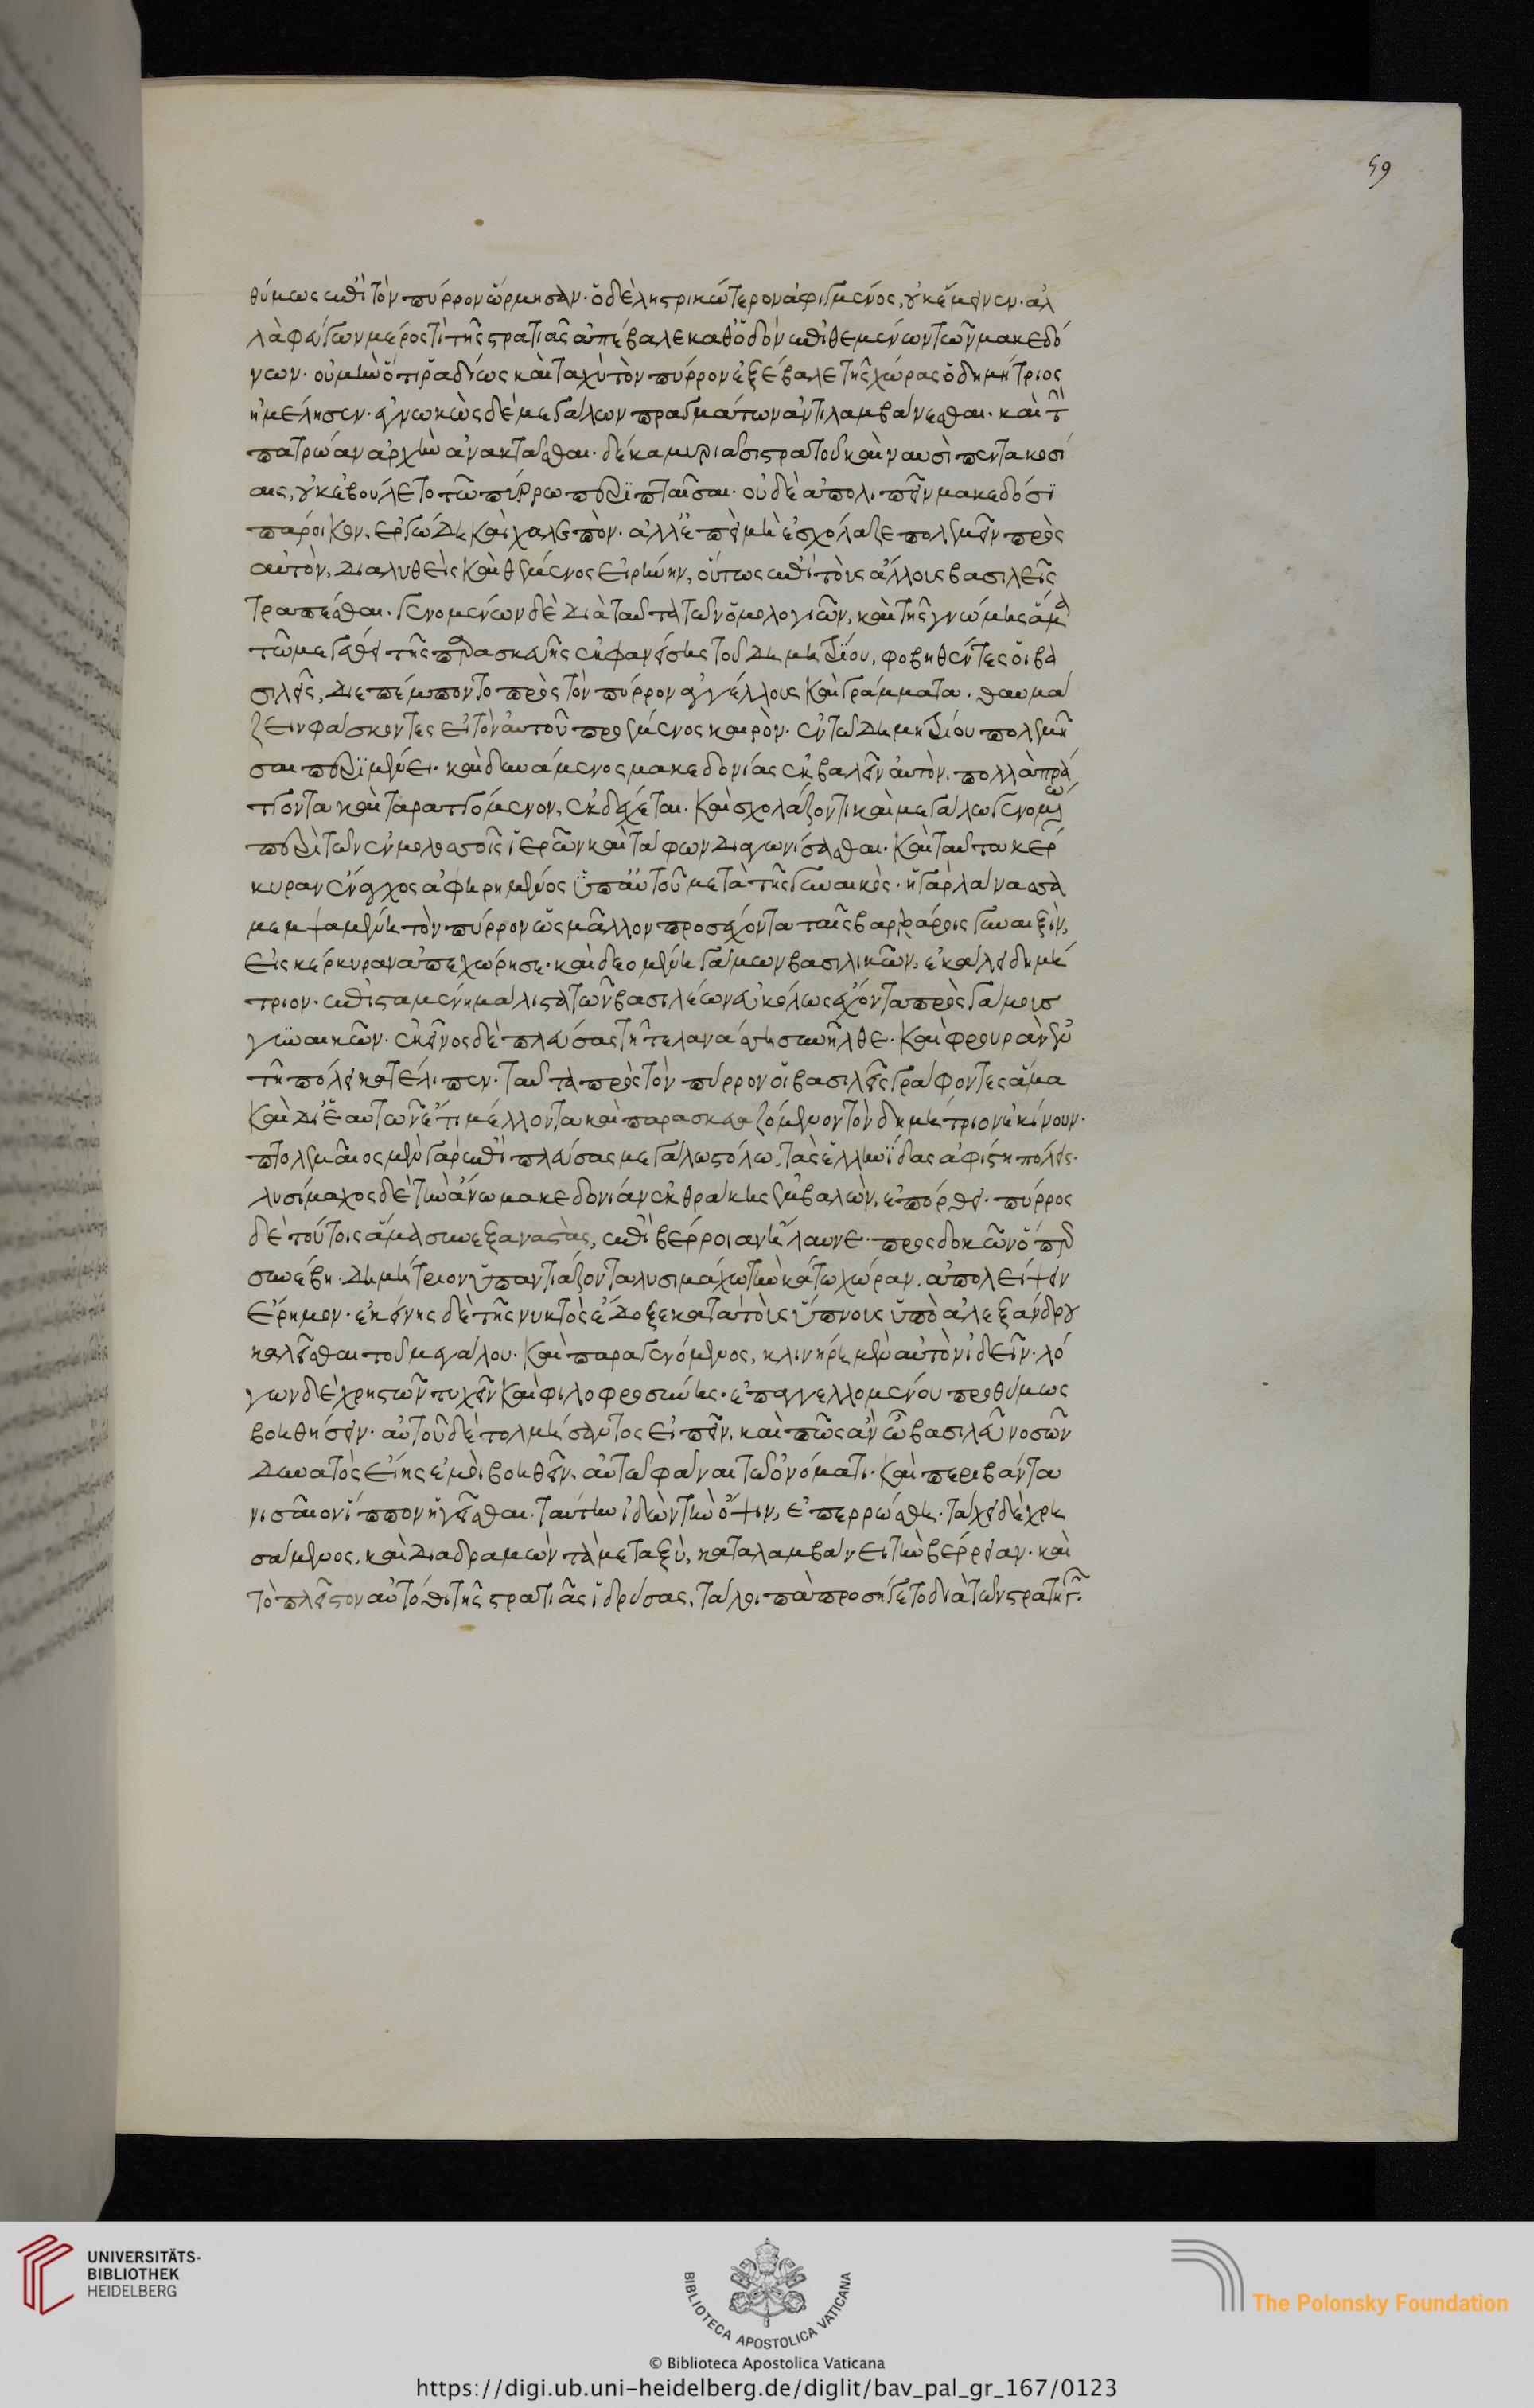 59
θύμως ἐπὶ τὸν πύρρον ὥρμησαν· ὁ δὲ ληστρικώτερον ἀφιγμένος, οὐκ ἔμεινεν· ἀλ
λὰ φεύγων μέρος τι τῆς στρατιᾶς ἀπέβαλε καθ' ὁδὸν ἐπιθεμένων τῶν μακεδό
νων· οὐ μὴν ὅτι ῥαδίως καὶ ταχὺ τὸν πύρρον ἐξέβαλε τῆς χώρας ὁ δημήτριος
ἠμέλησεν· ἐγνωκὼς δὲ μεγάλων πραγμάτων ἀντιλαμβάνεσθαι· καὶ τὴν
πατρῴαν ἀρχὴν ἀνακτᾶσθαι· δέκα μυριάσι στρατοῦ καὶ ναυσὶ πεντακοσί
αις, οὐκ ἐβούλετο τῶ πύρρω περιπταῖσαι· οὐδὲ ἀπολιπεῖν μακεδόσι
πάροικον, ἐργώδη καὶ χαλεπόν· ἀλλ' ἐπεὶ μὴ ἐσχόλαζε πολεμεῖν πρὸς
αὐτὸν, διαλυθεὶς καὶ θέμενος εἰρήνην, οὕτως ἐπὶ τοὺς ἄλλους βασιλεῖς
τραπέσθαι. γενομένων δὲ διὰ ταῦτα τῶν ὁμολογιῶν, καὶ τῆς γνώμης ἅμα
τῶ μεγέθει τῆς παρασκευῆς ἐκφανείσης τοῦ δημητρίου, φοβηθέντες οἱ βα
σιλεῖς, διεπέμποντο πρὸς τὸν πύρρον ἀγγέλους καὶ γράμματα. θαυμά
ζειν φάσκοντες εἰ τὸν αὐτοῦ προέμενος καιρὸν. ἐν τῶ δημητρίου πολεμῆ
σαι περιμένει. καὶ δυνάμενος μακεδονίας ἐκβαλεῖν αὐτὸν, πολλὰ πρά
ττοντα καὶ ταραττόμενον, ἐκδέχεται. καὶ σχολάζοντι καὶ μεγάλω γενομένω
περὶ τῶν ἐν μολοσσοῖς ἱερῶν καὶ τάφων διαγωνίσασθαι. καὶ ταῦτα κέρ
κυραν ἔναγχος ἀφηρημένος ὑπ' αὐτοῦ μετὰ τῆς γυναικός. ἡ γὰρ λάνασσα
μεμψαμένη τὸν πύρρον ὡς μᾶλλον προσέχοντα ταῖς βαρβάροις γυναιξὶν,
εἰς κέρκυραν ἀπεχώρησε. καὶ δεομένη γάμων βασιλικῶν, ἐκάλει δημή
τριον. ἐπισταμένη μάλιστα τῶν βασιλέων εὐκόλως ἔχοντα πρὸς γάμους
γυναικῶν. ἐκεῖνος δὲ πλεύσας τῆ τε λανάσση συνῆλθε. καὶ φρουρὰν ἐν
τῆ πόλει κατέλιπεν. ταῦτα πρὸς τὸν πύρρον οἱ βασιλεῖς γράφοντες ἅμα
καὶ δι' ἑαυτῶν ἔτι μέλλοντα καὶ παρασκευαζόμενον τὸν δημήτριον ἐκίνουν.
πτολεμαῖος μὲν γὰρ ἐπιπλεύσας μεγάλω στόλω, τὰς ἑλληνίδας ἀφίστη πόλεις.
λυσίμαχος δὲ τὴν ἄνω μακεδονίαν ἐκ θράκης ἐμβαλὼν, ἐπόρθει. πύρρος
δὲ τούτοις ἅμα συνεξαναστὰς, ἐπὶ βέρροιαν ἤλαυνε. προσδοκῶν ὅπερ
συνέβη. δημήτριον ὑπαντιάζοντα λυσιμάχω τὴν κάτω χώραν, ἀπολείψειν
ἔρημον. ἐκείνης δὲ τῆς νυκτὸς ἔδοξε κατὰ τοὺς ὕπνους ὑπὸ ἀλεξάνδρου
καλεῖσθαι τοῦ μεγάλου. καὶ παραγενόμενος, κλινήρη μὲν αὐτὸν ἰδεῖν. λό
γων δὲ χρηστῶν τυχεῖν καὶ φιλοφροσύνης. ἐπαγγελλομένου προθύμως
βοηθήσειν. αὐτοῦ δὲ τολμήσαντος εἰπεῖν, καὶ πῶς ἂν ὦ βασιλεῦ νοσῶν
δυνατὸς εἴης ἐμοὶ βοηθεῖν, αὐτῶ φάναι τῶ ὀνόματι. καὶ περιβάντα
νισαῖον ἵππον ἡγεῖσθαι. ταύτην ἰδὼν τὴν ὄψιν, ἐπερρώσθη. τάχει δὲ χρη
σάμενος, καὶ διαδραμὼν τὰ μεταξὺ, καταλαμβάνει τὴν βέρροιαν. καὶ
τὸ πλεῖστον αὐτόθι τῆς στρατιᾶς ἱδρύσας, τὰ λοιπὰ προσήγετο διὰ τῶν στρατηγῶν.
UNIVERSITÄTS-
BIBLIOTHEK
HEIDELBERG
BIBLIOTECA APOSTOLICA VATICANA
The Polonsky Foundation
© Biblioteca Apostolica Vaticana
https://digi.ub.uni-heidelberg.de/diglit/bav_pal_gr_167/0123